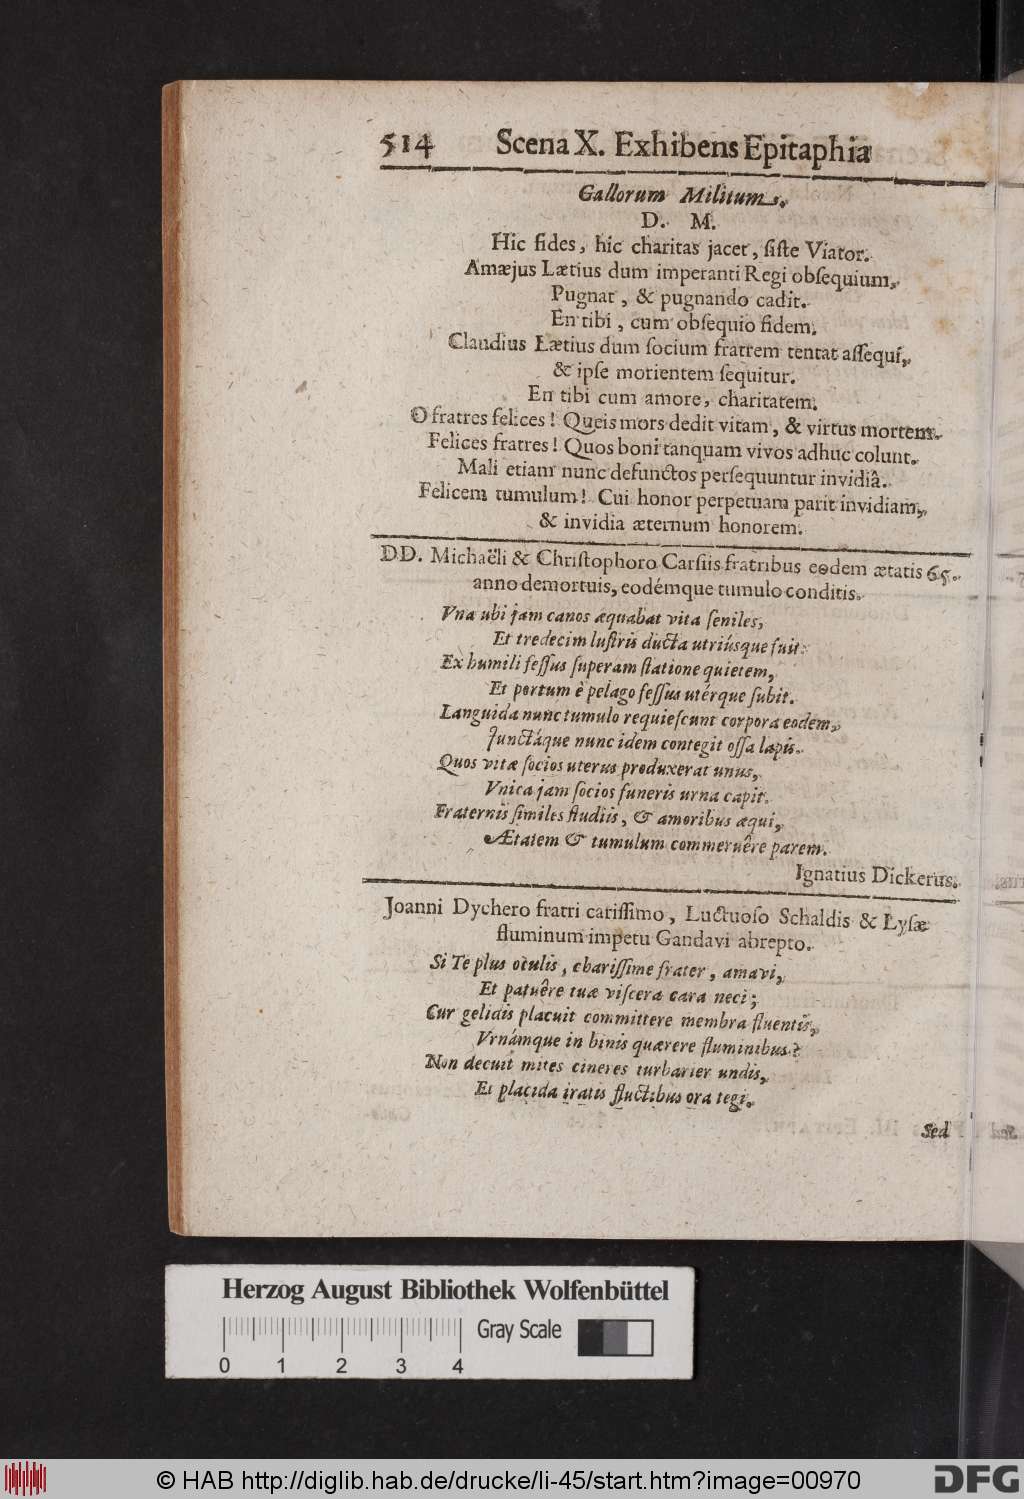 514 Scena X. Exhibens Epitaphia
Gallorum Militum.
D. M.
Hic fides, hic charitas jacet, ſiſte Viator.
Amæjus Lætius dum imperanti Regi obſequium,
Pugnat, & pugnando cadit.
En tibi, cum obſequio fidem.
Claudius Lætius dum ſocium fratrem tentat aſſequi,
& ipſe morientem ſequitur.
En tibi cum amore, charitatem.
O fratres felices! Queis mors dedit vitam, & virtus mortem.
Felices fratres! Quos boni tanquam vivos adhuc colunt.
Mali etiam nunc defunctos perſequuntur invidiâ.
Felicem tumulum! Cui honor perpetuam parit invidiam,
& invidia æternum honorem.
DD. Michaëli & Chriſtophoro Carſiis fratribus eodem ætatis 65.
anno demortuis, eodémque tumulo conditis.
Vna ubi jam canos æquabat vita ſeniles,
Et tredecim luſtris ducta utriúsque fuit:
Ex humili feſſus ſuperam ſtatione quietem,
Et portum è pelago feſſus utérque ſubit.
Languida nunc tumulo requieſcunt corpora eodem,
Junctáque nunc idem contegit oſſa lapis.
Quos vitæ ſocios uterus produxerat unus,
Vnica jam ſocios funeris urna capit.
Fraternis ſimiles ſtudiis, & amoribus æqui,
Ætatem & tumulum commeruêre parem.
Ignatius Dickerus.
Joanni Dychero fratri cariſſimo, Luctuoſo Schaldis & Lyſæ
fluminum impetu Gandavi abrepto.
Si Te plus oculis, chariſſime frater, amavi,
Et patuêre tuæ viſcera cara neci;
Cur gelidis placuit committere membra fluentis,
Vrnámque in binis quærere fluminibus?
Non decuit mites cineres turbarier undis,
Et placida iratis fluctibus ora tegi.
Sed
Herzog August Bibliothek Wolfenbüttel
Gray Scale
0 1 2 3 4
© HAB http://diglib.hab.de/drucke/li-45/start.htm?image=00970
DFG